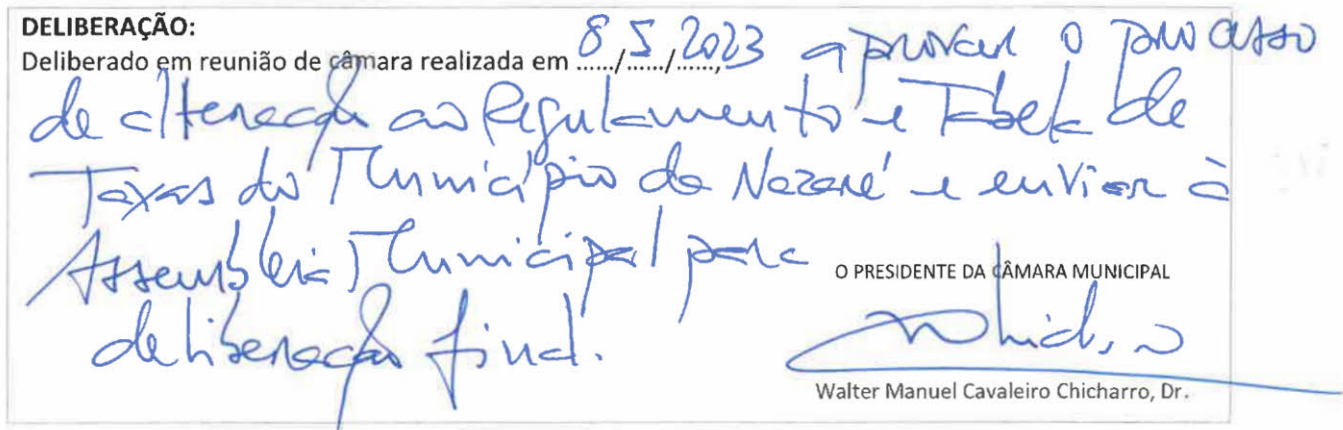 DELIBERAÇÃO:
Deliberado em reunião de câmara realizada em 8/5/2023, aprovar o processo
de alteração ao Regulamento e Tabela de
Taxas do Município da Nazaré e enviar à
Assembleia Municipal para
O PRESIDENTE DA CÂMARA MUNICIPAL
deliberação final.
Walter Manuel Cavaleiro Chicharro, Dr.